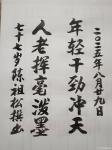 二〇二五年八月廿九日
年轻干劲冲天
人老挥毫泼墨
七十七岁陈祖松撰出